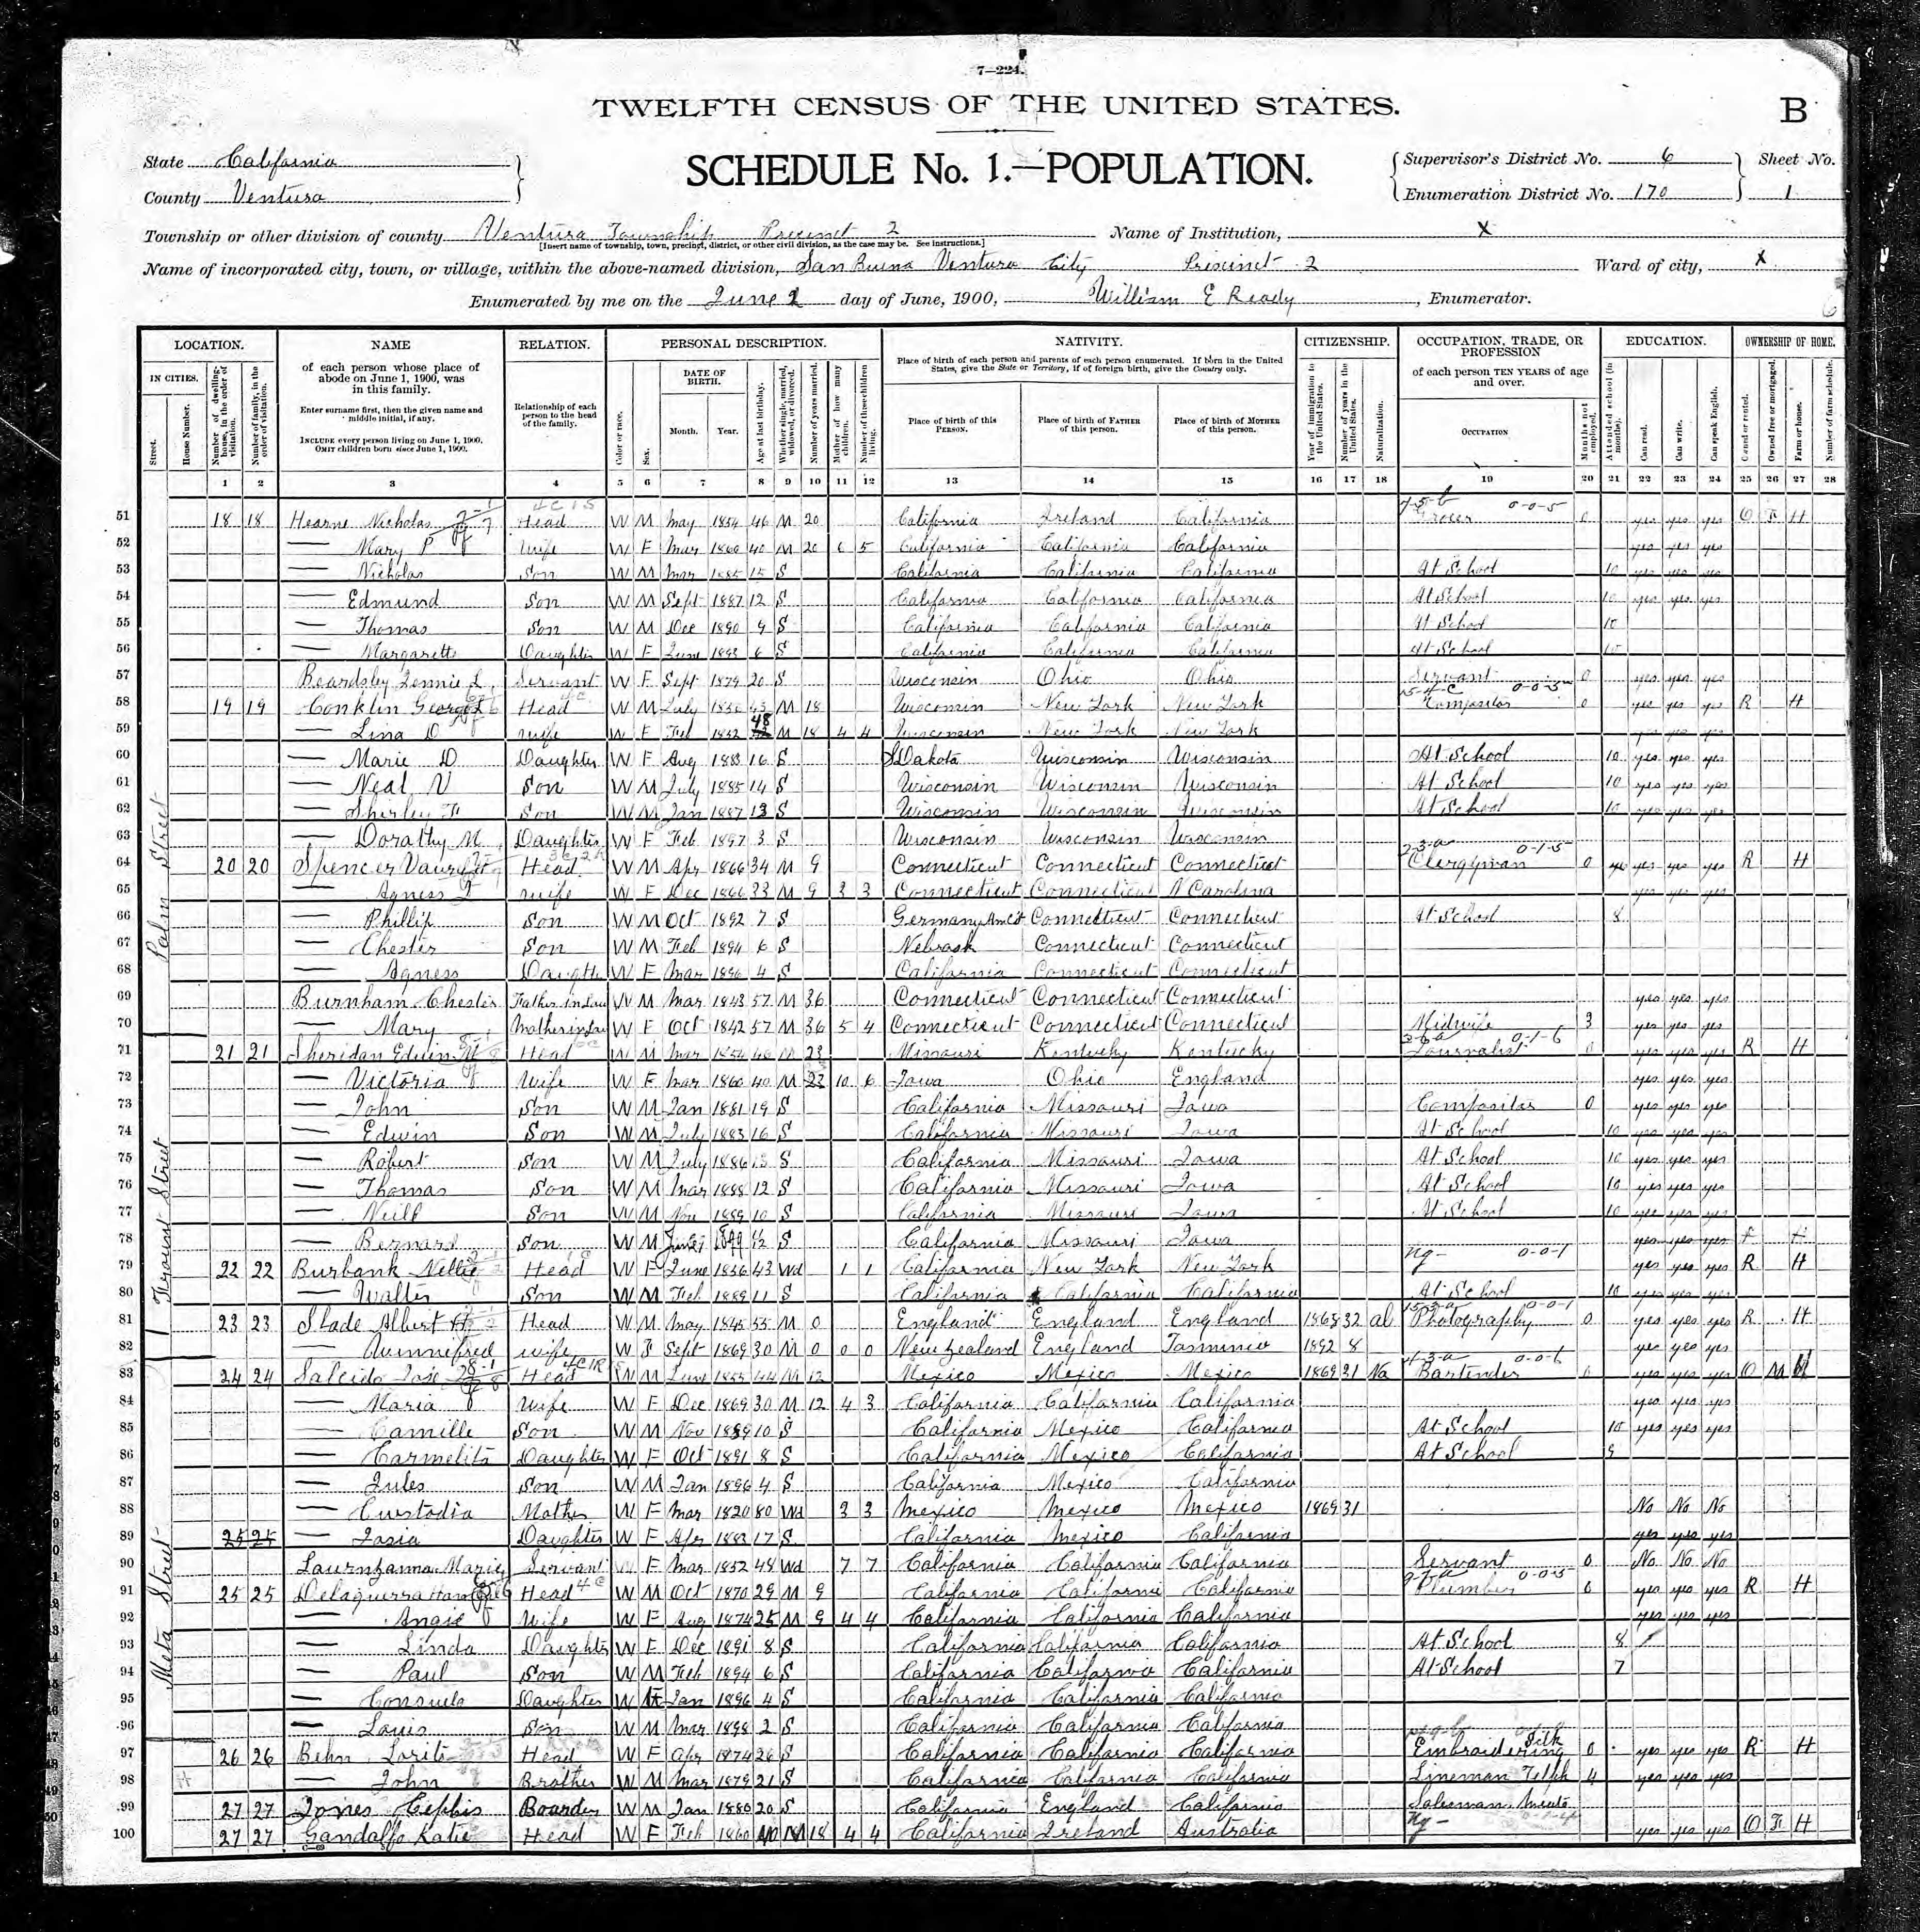 7—224.
TWELFTH CENSUS OF THE UNITED STATES.
B
State California
SCHEDULE No. 1.—POPULATION.
Supervisor's District No. 6 Sheet No.
County Ventura
Enumeration District No. 170 1
Township or other division of county Ventura Township Precinct 2 Name of Institution, X
[Insert name of township, town, precinct, district, or other civil division, as the case may be. See instructions.]
Name of incorporated city, town, or village, within the above-named division, San Buena Ventura City Precinct 2 Ward of city, X
Enumerated by me on the June 1 day of June, 1900, William E Ready, Enumerator.
LOCATION. NAME RELATION. PERSONAL DESCRIPTION. NATIVITY. CITIZENSHIP. OCCUPATION, TRADE, OR PROFESSION EDUCATION. OWNERSHIP OF HOME.
IN CITIES. Street. House Number. Number of dwelling-house, in the order of visitation. Number of family, in the order of visitation.
of each person whose place of abode on June 1, 1900, was in this family.
Enter surname first, then the given name and middle initial, if any.
INCLUDE every person living on June 1, 1900. OMIT children born since June 1, 1900.
Relationship of each person to the head of the family.
Color or race. Sex. DATE OF BIRTH. Month. Year. Age at last birthday. Whether single, married, widowed, or divorced. Number of years married. Mother of how many children. Number of these children living.
Place of birth of each person and parents of each person enumerated. If born in the United States, give the State or Territory; if of foreign birth, give the Country only.
Place of birth of this PERSON. Place of birth of FATHER of this person. Place of birth of MOTHER of this person.
Year of immigration to the United States. Number of years in the United States. Naturalization.
of each person TEN YEARS of age and over.
OCCUPATION. Months not employed.
Attended school (in months). Can read. Can write. Can speak English.
Owned or rented. Owned free or mortgaged. Farm or house. Number of farm schedule.
1 2 3 4 5 6 7 8 9 10 11 12 13 14 15 16 17 18 19 20 21 22 23 24 25 26 27 28
Palm Street
51 18 18 Hearne Nicholas Head W M May 1854 46 M 20 California Ireland California Grocer 0 yes yes yes O F H
52 — Mary P Wife W F Mar 1860 40 M 20 6 5 California California California yes yes yes
53 — Nicholas Son W M Mar 1885 15 S California California California At School 10 yes yes yes
54 — Edmund Son W M Sept 1887 12 S California California California At School 10 yes yes yes
55 — Thomas Son W M Dec 1890 9 S California California California At School 10
56 — Margarett Daughter W F June 1893 6 S California California California At School 10
57 Beardsley Jennie L Servant W F Sept 1879 20 S Wisconsin Ohio Ohio Servant 0 yes yes yes
58 19 19 Conklin George Head W M July 1856 43 M 18 Wisconsin New York New York Compositor 0 yes yes yes R H
59 — Lina D Wife W F Feb 1852 48 M 18 4 4 Wisconsin New York New York yes yes yes
60 — Marie D Daughter W F Aug 1883 16 S S Dakota Wisconsin Wisconsin At School 10 yes yes yes
61 — Neal V Son W M July 1885 14 S Wisconsin Wisconsin Wisconsin At School 10 yes yes yes
62 — Shirley F Son W M Jan 1887 13 S Wisconsin Wisconsin Wisconsin At School 10 yes yes yes
63 — Dorathy M Daughter W F Feb 1897 3 S Wisconsin Wisconsin Wisconsin
64 20 20 Spencer Head W M Apr 1866 34 M 9 Connecticut Connecticut Connecticut Clergyman 0 yes yes yes R H
65 — Agness Wife W F Dec 1866 33 M 9 3 3 Connecticut Connecticut N Carolina yes yes yes
66 — Phillip Son W M Oct 1892 7 S Germany Connecticut Connecticut At School 8
67 — Chester Son W M Feb 1894 6 S Nebrask Connecticut Connecticut
68 — Agness Daughter W F Mar 1896 4 S California Connecticut Connecticut
69 Burnham Chester Father in law W M Mar 1843 57 M 36 Connecticut Connecticut Connecticut yes yes yes
70 — Mary Mother in law W F Oct 1842 57 M 36 5 4 Connecticut Connecticut Connecticut Midwife 3 yes yes yes
Front Street
71 21 21 Sheridan Edwin M Head W M Mar 1854 46 M 23 Missouri Kentucky Kentucky Journalist 0 yes yes yes R H
72 — Victoria Wife W F Mar 1860 40 M 23 10 6 Iowa Ohio England yes yes yes
73 — John Son W M Jan 1881 19 S California Missouri Iowa Compositor 0 yes yes yes
74 — Edwin Son W M July 1883 16 S California Missouri Iowa At School 10 yes yes yes
75 — Robert Son W M July 1886 13 S California Missouri Iowa At School 10 yes yes yes
76 — Thomas Son W M Mar 1888 12 S California Missouri Iowa At School 10 yes yes yes
77 — Neill Son W M Nov 1889 10 S California Missouri Iowa At School 10 yes yes yes
78 — Bernard Son W M June 1899 S California Missouri Iowa yes yes yes
79 22 22 Burbank Nellie Head W F June 1856 43 Wd 1 1 California New York New York yes yes yes R H
80 — Walter Son W M Feb 1889 11 S California California California At School 10 yes yes yes
81 23 23 Slade Albert Head W M May 1845 55 M 0 England England England 1868 32 al Photography 0 yes yes yes R H
82 — Quinnefred wife W F Sept 1869 30 M 0 0 0 New Zealand England Tasminia 1892 8 yes yes yes
Meta Street
83 24 24 Salcido Jose Head W M June 1855 44 M 12 Mexico Mexico Mexico 1869 31 Na Bartender 0 yes yes yes O M H
84 — Maria Wife W F Dec 1869 30 M 12 4 3 California California California yes yes yes
85 — Camille Son W M Nov 1889 10 S California Mexico California At School 10 yes yes yes
86 — Carmelita Daughter W F Oct 1891 8 S California Mexico California At School 9
87 — Jules Son W M Jan 1896 4 S California Mexico California
88 — Custodia Mother W F Mar 1820 80 Wd 3 3 Mexico Mexico Mexico 1869 31 No No No
89 25 25 — Daughter W F Apr 1883 17 S California Mexico California yes yes yes
90 Marie Servant W F Mar 1852 48 Wd 7 7 California California California Servant 0 No No No
91 25 25 Delaguerra Head W M Oct 1870 29 M 9 California California California Plumber 6 yes yes yes R H
92 — Angie Wife W F Aug 1874 25 M 9 4 4 California California California yes yes yes
93 — Linda Daughter W F Dec 1891 8 S California California California At School 8
94 — Paul Son W M Feb 1894 6 S California California California At School 7
95 — Consuelo Daughter W F Jan 1896 4 S California California California
96 — Louis Son W M Mar 1898 2 S California California California
97 26 26 Behn Lorito Head W F Apr 1874 26 S California California California Silk Embraidering 0 yes yes yes R H
98 — John Brother W M Mar 1879 21 S California California California Lineman Telph 4 yes yes yes
99 27 27 Jones Cephis Boarder W M Jan 1880 20 S California England California Salesman Meats
100 27 27 Gandolfo Katie Head W F Feb 1860 40 M 18 4 4 California Ireland Australia yes yes yes O F H